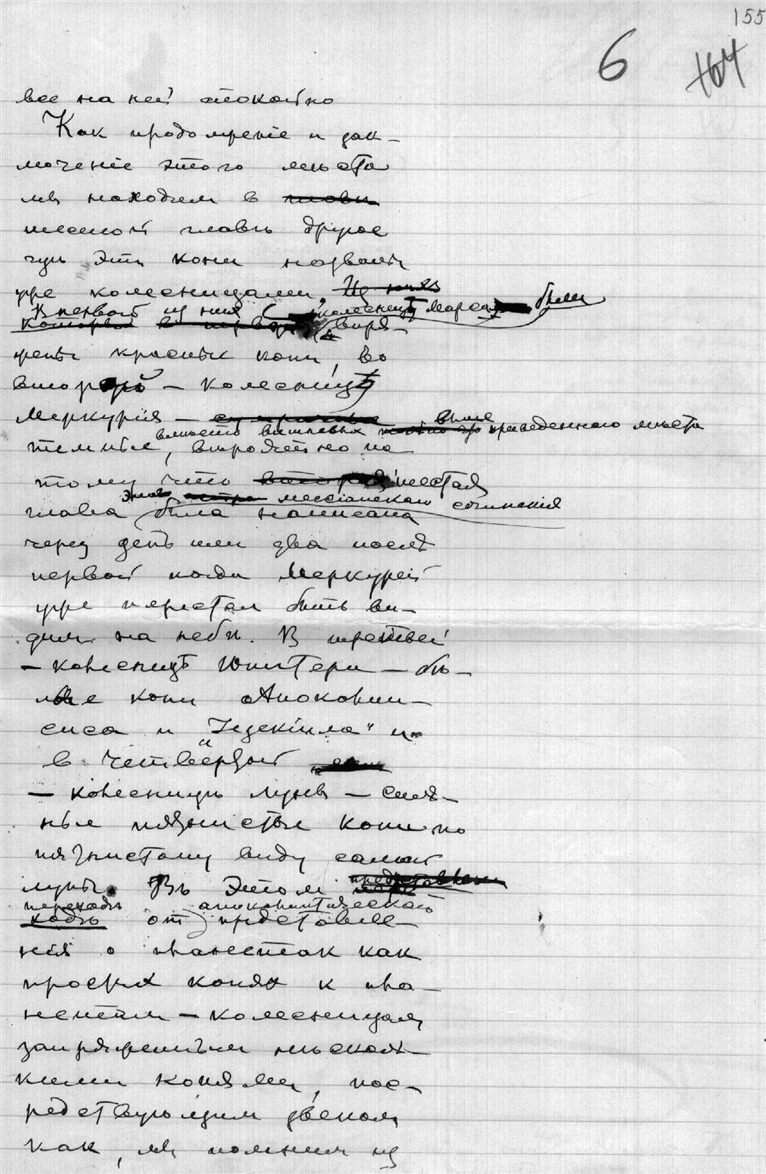 155
6
164
все на ней спокойно
Как продолженіе и зак-
люченіе этого мѣста
мы находим в
шестой главѣ другое
гдѣ эти кони названы
уже колесницами,
В первой из них (колесницѣ Марса) были
впря-
жены красные кони, во
второй — колесницѣ
Меркурія —
выше
вместо приведенного мѣста
темные, вѣроятно по
тому что шестая
этого мессіанскаго сочиненія
глава была написана
через день или два послѣ
первой когда Меркурій
уже перестал быть ви-
дим на небѣ. В третьей
— колесницѣ Юпитера — бѣ-
лые кони Апокалип-
сиса и "Іезекіила" и
в четвёртой
— колесницѣ луны — силь-
ные пятнистые кони по
пятнистому виду самой
луны. Въ этом
переходѣ апокалиптическаго
от представле-
нія о планетах как
простых конях к пла-
нетам — колесницам
запряженным нѣсколь-
кими конями, пос-
редствующим звеном
как, мы помним из